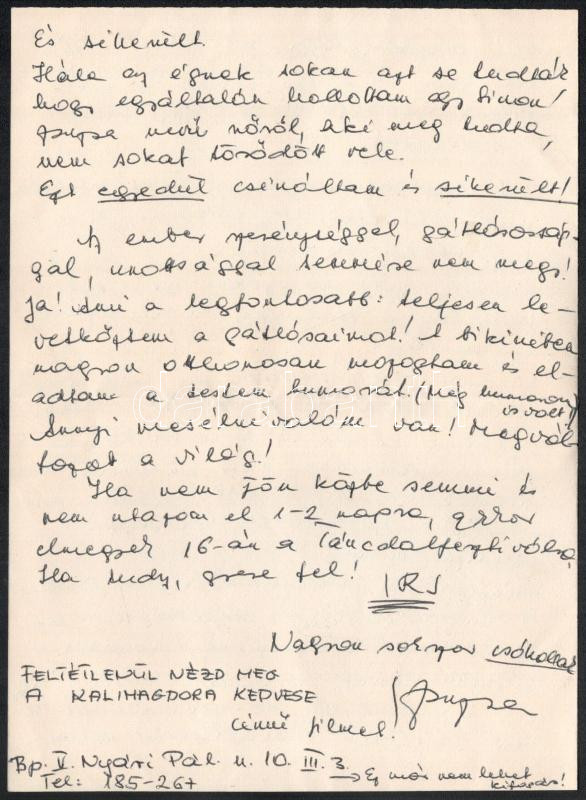 És sikerült.
Hála az égnek sokan azt se tudták
hogy egyáltalán hallottam
nevű nőről, aki meg tudta,
nem sokat törődött vele.
Ezt egyedül csináltam és sikerült!
Az ember szerénységgel, gátlásosság-
gal, unottsággal semmire nem megy!
Ja! Ami a legfontosabb: teljesen le-
vetkőztem a gátlásaimat! A bikiniben
nagyon otthonosan mozogtam és el-
adtam a testem humorát. (Még humorom
is volt)
Annyi mesélnivalóm van! Megvál-
tozott a világ!
Ha nem jön közbe semmi és
nem utazom el 1-2 napra, akkor
elmegyek 16-án a Táncdalfesztiválra,
Ha tudsz, gyere fel!
IRJ
Nagyon sokszor csókollak
FELTÉTLENÜL NÉZD MEG
A KALIMAGDORA KEDVESE
című filmet!
Bp. V. Nyári Pál u. 10. III. 3.
Ez már nem lehet
kifogás!
Tel: 185-267
darabanth